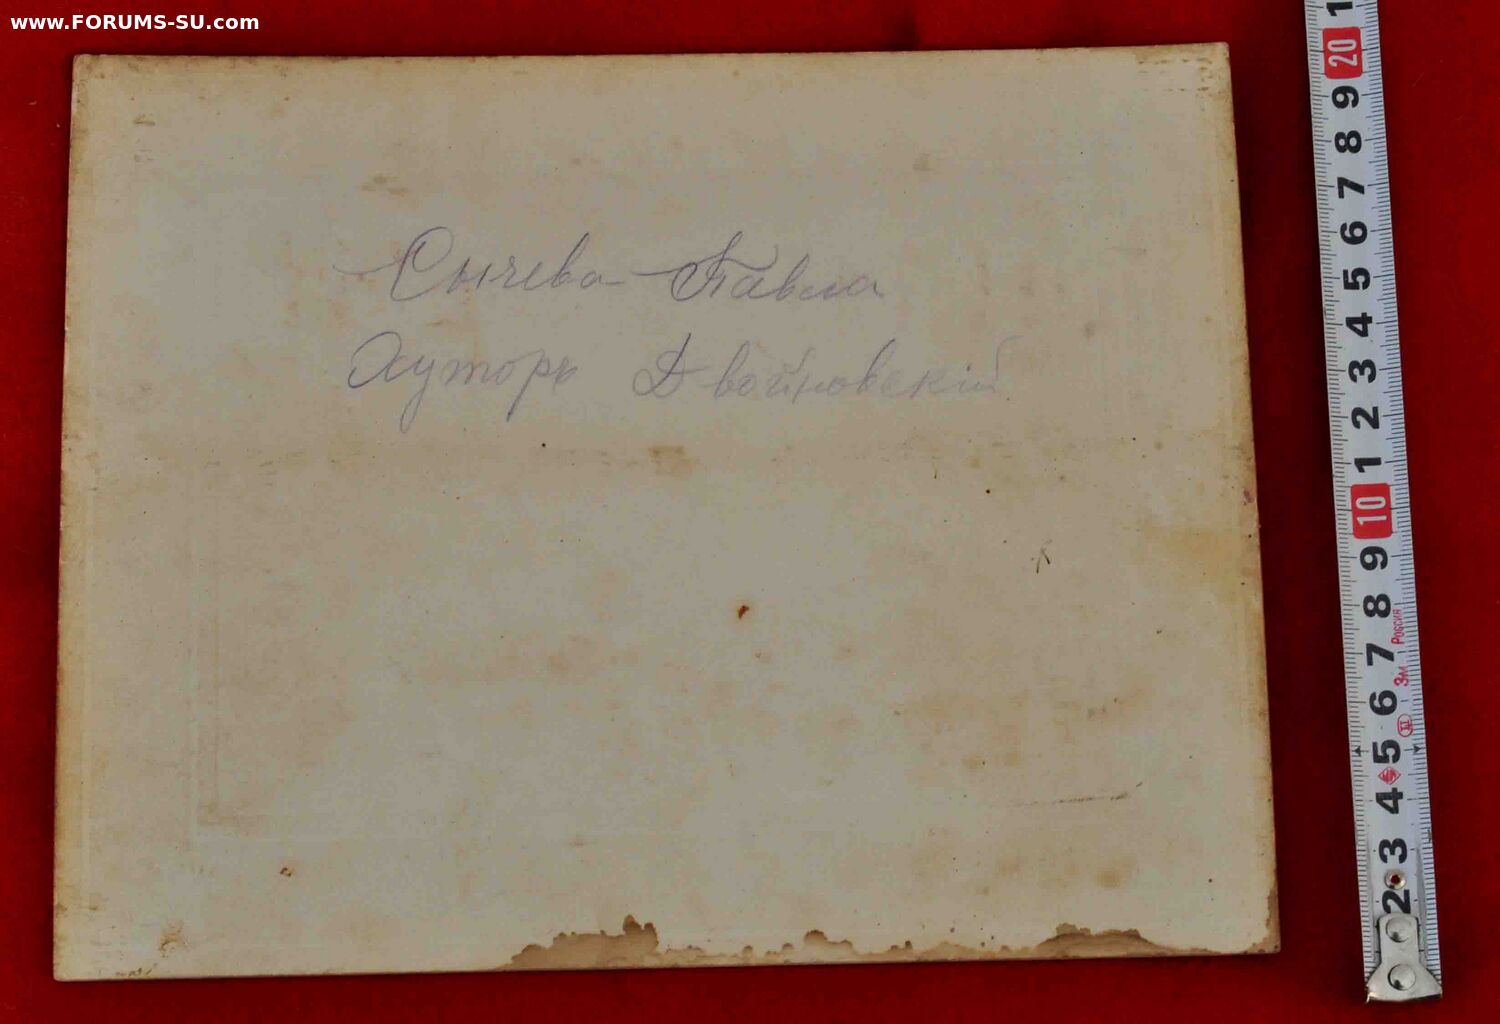 www.FORUMS-SU.com
Сычева Павла
Хуторъ Двойновскій
1
20
9
8
7
6
5
4
3
2
1
10
9
8
7
6
5
4
3
2
РОССИЯ
3м
II